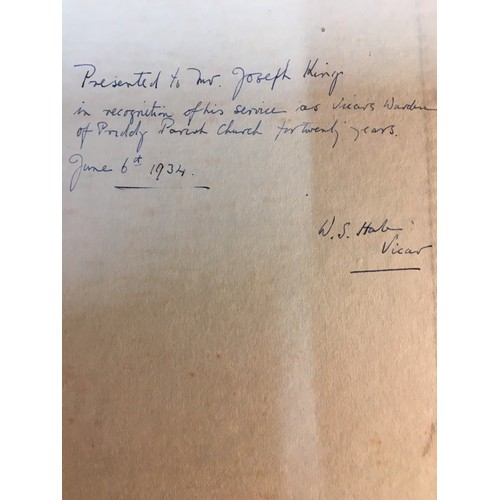 Presented to Mr. Joseph King
in recognition of his service as Vicars Warden
of Priddy Parish Church for twenty years.
June 6st 1934.
W. S.
Vicar